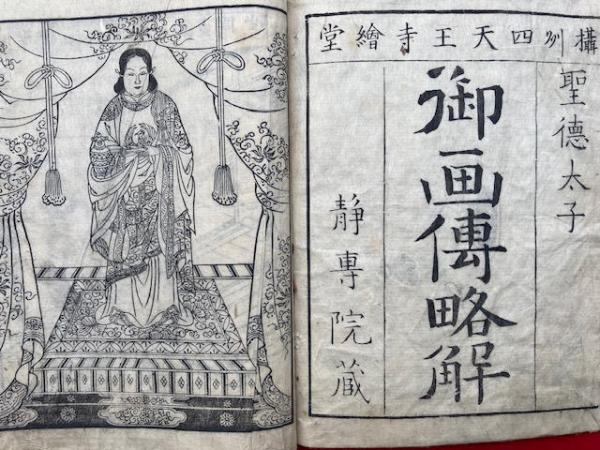 攝州四天王寺繪堂
聖德太子
御画傳略解
静專院蔵